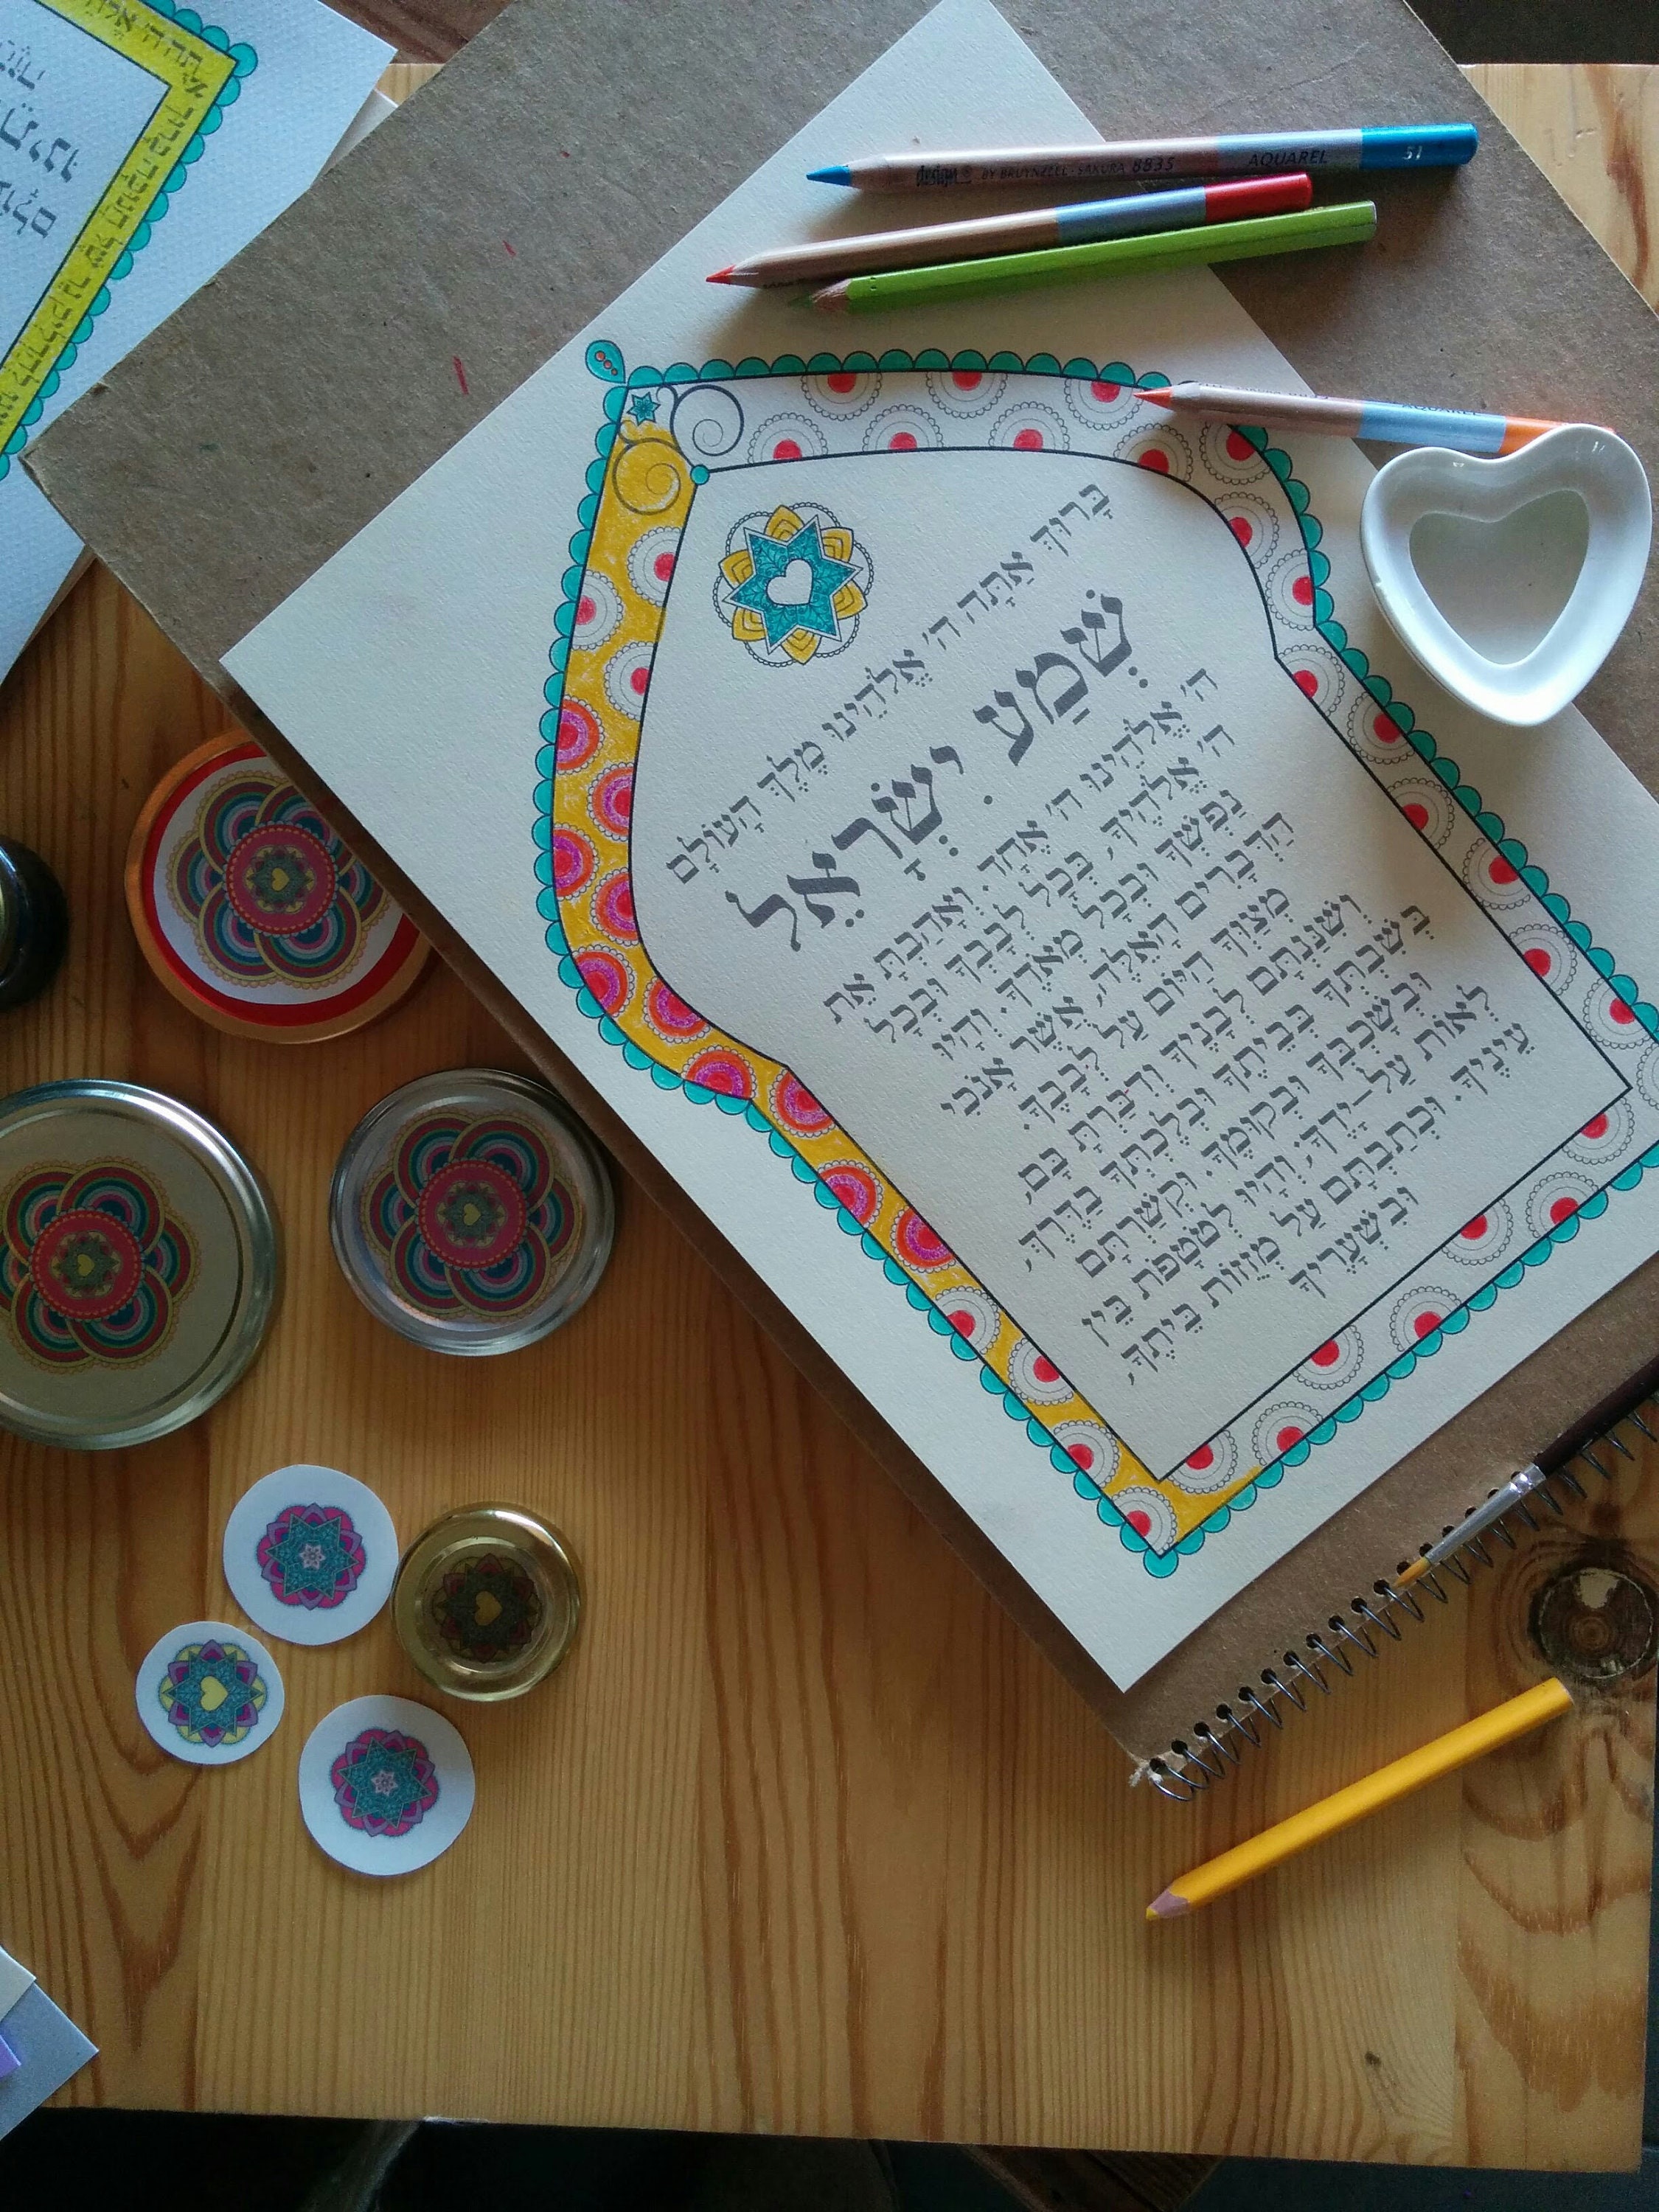 design BY BRUYNZEEL-SAKURA 8835 AQUAREL 51
AQUAREL
בָּרוּךְ אַתָּה ה' אֱלֹהֵינוּ מֶלֶךְ הָעוֹלָם
שְׁמַע יִשְׂרָאֵל
ה' אֱלֹהֵינוּ ה' אֶחָד. וְאָהַבְתָּ אֵת
ה' אֱלֹהֶיךָ, בְּכָל לְבָבְךָ וּבְכָל
נַפְשְׁךָ וּבְכָל מְאֹדֶךָ. וְהָיוּ
הַדְּבָרִים הָאֵלֶּה, אֲשֶׁר אָנֹכִי
מְצַוְּךָ הַיּוֹם עַל לְבָבֶךָ.
וְשִׁנַּנְתָּם לְבָנֶיךָ וְדִבַּרְתָּ בָּם,
בְּשִׁבְתְּךָ בְּבֵיתֶךָ וּבְלֶכְתְּךָ בַדֶּרֶךְ,
וּבְשָׁכְבְּךָ וּבְקוּמֶךָ. וּקְשַׁרְתָּם
לְאוֹת עַל-יָדֶךָ; וְהָיוּ לְטֹטָפֹת בֵּין
עֵינֶיךָ. וּכְתַבְתָּם עַל מְזֻזוֹת בֵּיתֶךָ,
וּבִשְׁעָרֶיךָ